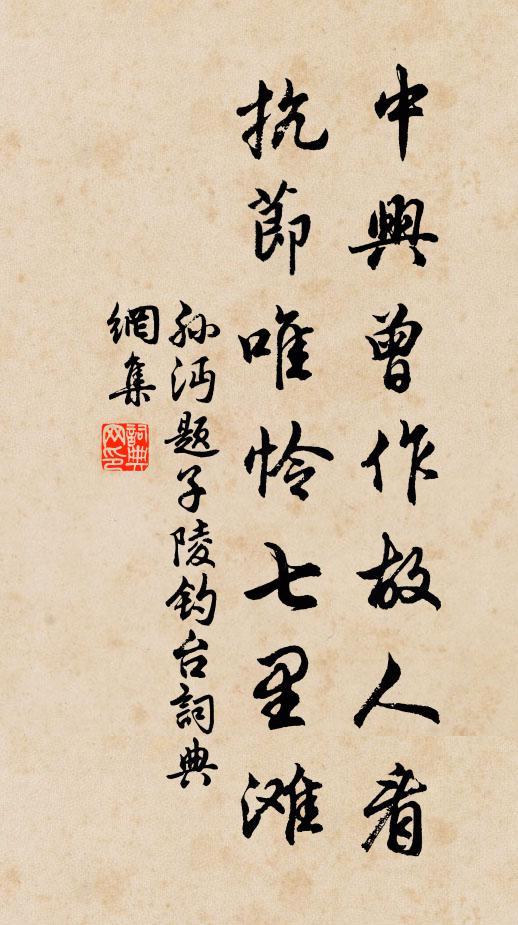 中興曾作故人看
抗節唯怜七里滩
孙沔题子陵钓台詞典
網集
詞典
网印